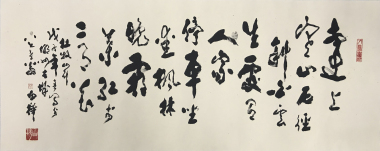 遠上
寒山石径
斜白雲
生處有
人家
停車坐
愛楓林
晚霜
葉紅於
二月花
杜牧山行
戊戌年